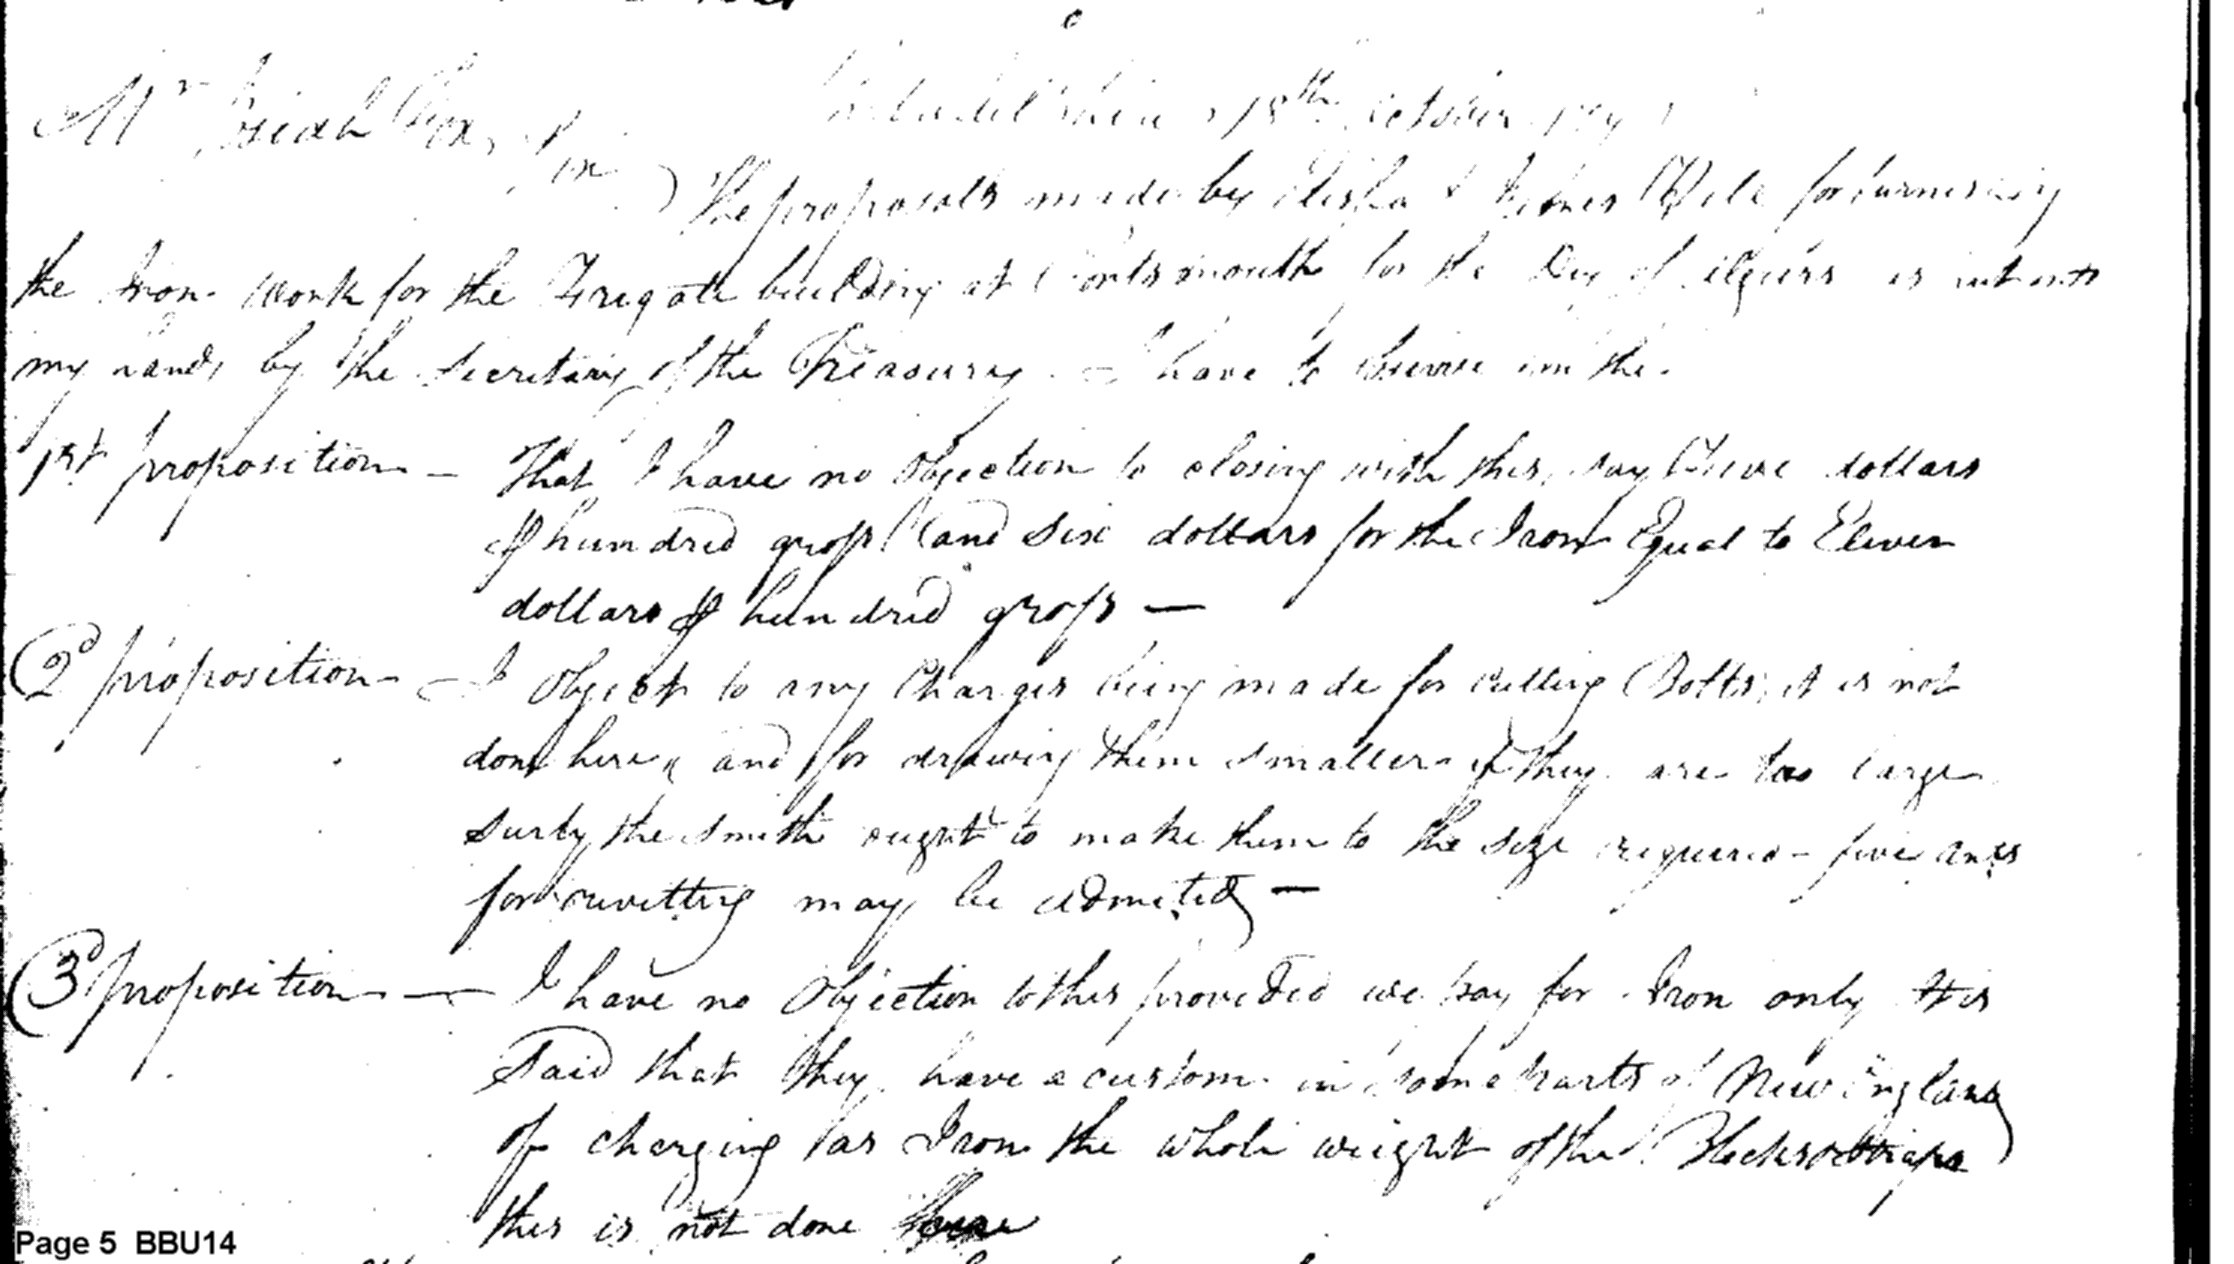 Mr Josiah Fox, Philadelphia 18th October
Sir
The proposals made by Elisha & James Hill for furnishing
the Iron work for the Frigate building at Portsmouth for the Dey of Algiers is put into
my hands by the Secretary of the Treasury - I have to observe on the
1st proposition - That I have no Objection to closing with this, say Five dollars
⅌ hundred gross (and Six dollars for the Iron Equal to Eleven
dollars ⅌ hundred gross -
2d proposition - I Object to any Charges being made for cutting Bolts, it is not
done here, and for drawing them smaller if they are too large
surly the smith ought to make them to the size required - five cents
for rivetting may be admited -
3d proposition - I have no Objection to this provided we pay for Iron only tis
Said that they have a custom in some parts of New England
of charging as Iron the whole weight of the Blocks & Straps
this is not done here
Page 5 BBU14